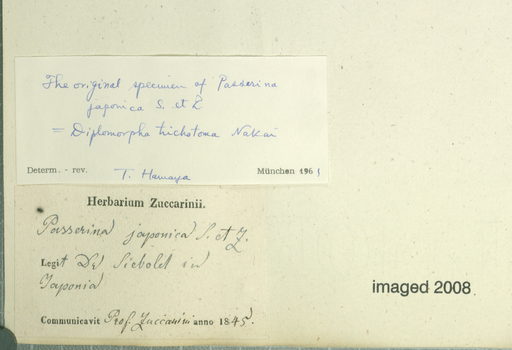 The original specimen of Passerina
japonica S. et Z
= Diplomorpha trichotoma Nakai
Determ. - rev. T. Hamaya München 1961
Herbarium Zuccarinii.
Passerina japonica S. et Z.
Legit Dr Siebold in
Japonia
Communicavit Prof. Zuccarini anno 1845.
imaged 2008